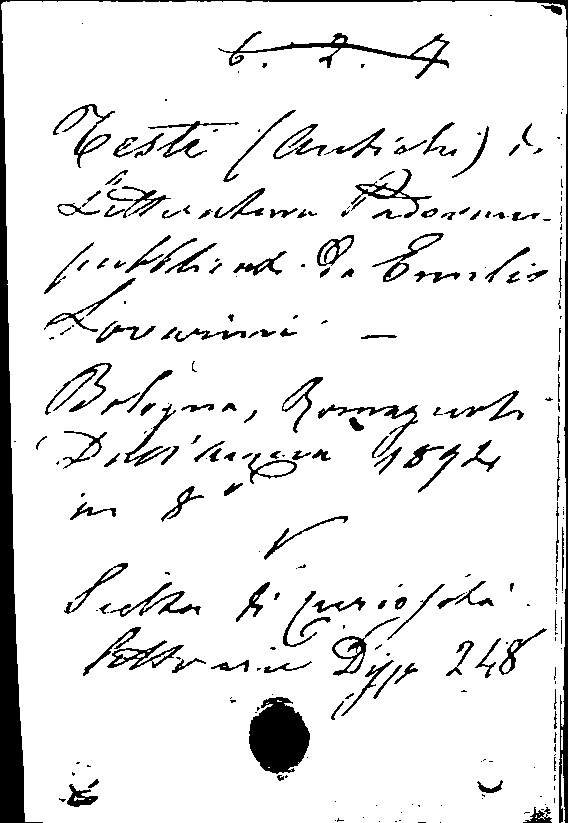 6. 2. 7
Testi (Antichi) di
Letteratura Padovana
pubblicati da Emilio
Lovarini —
Bologna, Romagnoli
Dall'Acqua 1894
in 8°
V
Scelta di curiosità
letterarie Disp 248